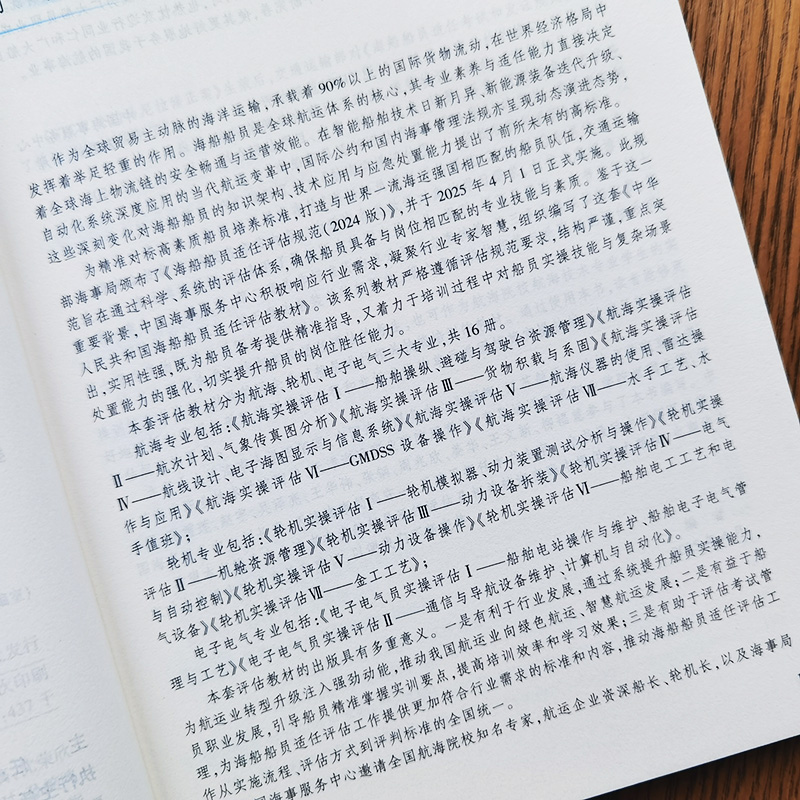 作为全球贸易主动脉的海洋运输，承载着 90% 以上的国际货物流动，在世界经济格局中
发挥着举足轻重的作用。海船船员是全球航运体系的核心，其专业素养与适任能力直接决定
着全球海上物流链的安全畅通与运营效能。在智能船舶技术日新月异、新能源装备迭代升级、
自动化系统深度应用的当代航运变革中，国际公约和国内海事管理法规亦呈现动态演进态势，
这些深刻变化对海船船员的知识架构、技术应用与应急处置能力提出了前所未有的高标准。
为精准对标高素质船员培养标准，打造与世界一流海运强国相匹配的船员队伍，交通运输
部海事局颁布了《海船船员适任评估规范(2024 版)》，并于 2025 年 4 月 1 日正式实施。此规
范旨在通过科学、系统的评估体系，确保船员具备与岗位相匹配的专业技能与素质。鉴于这一
重要背景，中国海事服务中心积极响应行业需求，凝聚行业专家智慧，组织编写了这套《中华
人民共和国海船船员适任评估教材》。该系列教材严格遵循评估规范要求，结构严谨，重点突
出，实用性强，既为船员备考提供精准指导，又着力于培训过程中对船员实操技能与复杂场景
处置能力的强化，切实提升船员的岗位胜任能力。
本套评估教材分为航海、轮机、电子电气三大专业，共 16 册。
航海专业包括:《航海实操评估Ⅰ——船舶操纵、避碰与驾驶台资源管理》《航海实操评估
Ⅱ——航次计划、气象传真图分析》《航海实操评估Ⅲ——货物积载与系固》《航海实操评估
Ⅳ——航线设计、电子海图显示与信息系统》《航海实操评估Ⅴ——航海仪器的使用、雷达操
作与应用》《航海实操评估Ⅵ——GMDSS 设备操作》《航海实操评估Ⅶ——水手工艺、水
手值班》；
轮机专业包括:《轮机实操评估Ⅰ——轮机模拟器、动力装置测试分析与操作》《轮机实操
评估Ⅱ——机舱资源管理》《轮机实操评估Ⅲ——动力设备拆装》《轮机实操评估Ⅳ——电气
与自动控制》《轮机实操评估Ⅴ——动力设备操作》《轮机实操评估Ⅵ——船舶电工工艺和电
气设备》《轮机实操评估Ⅶ——金工工艺》；
电子电气专业包括:《电子电气员实操评估Ⅰ——船舶电站操作与维护、船舶电子电气管
理与工艺》《电子电气员实操评估Ⅱ——通信与导航设备维护、计算机与自动化》。
本套评估教材的出版具有多重意义。一是有利于行业发展，通过系统提升船员实操能力，
为航运业转型升级注入强劲动能，推动我国航运业向绿色航运、智慧航运发展；二是有益于船
员职业发展，引导船员精准掌握实训要点，提高培训效率和学习效果；三是有助于评估考试管
理，为海船船员适任评估工作提供更加符合行业需求的标准和内容，推动海船船员适任评估工
作从实施流程、评估方式到评判标准的全国统一。
国海事服务中心邀请全国航海院校知名专家，航运企业资深船长、轮机长，以及海事局